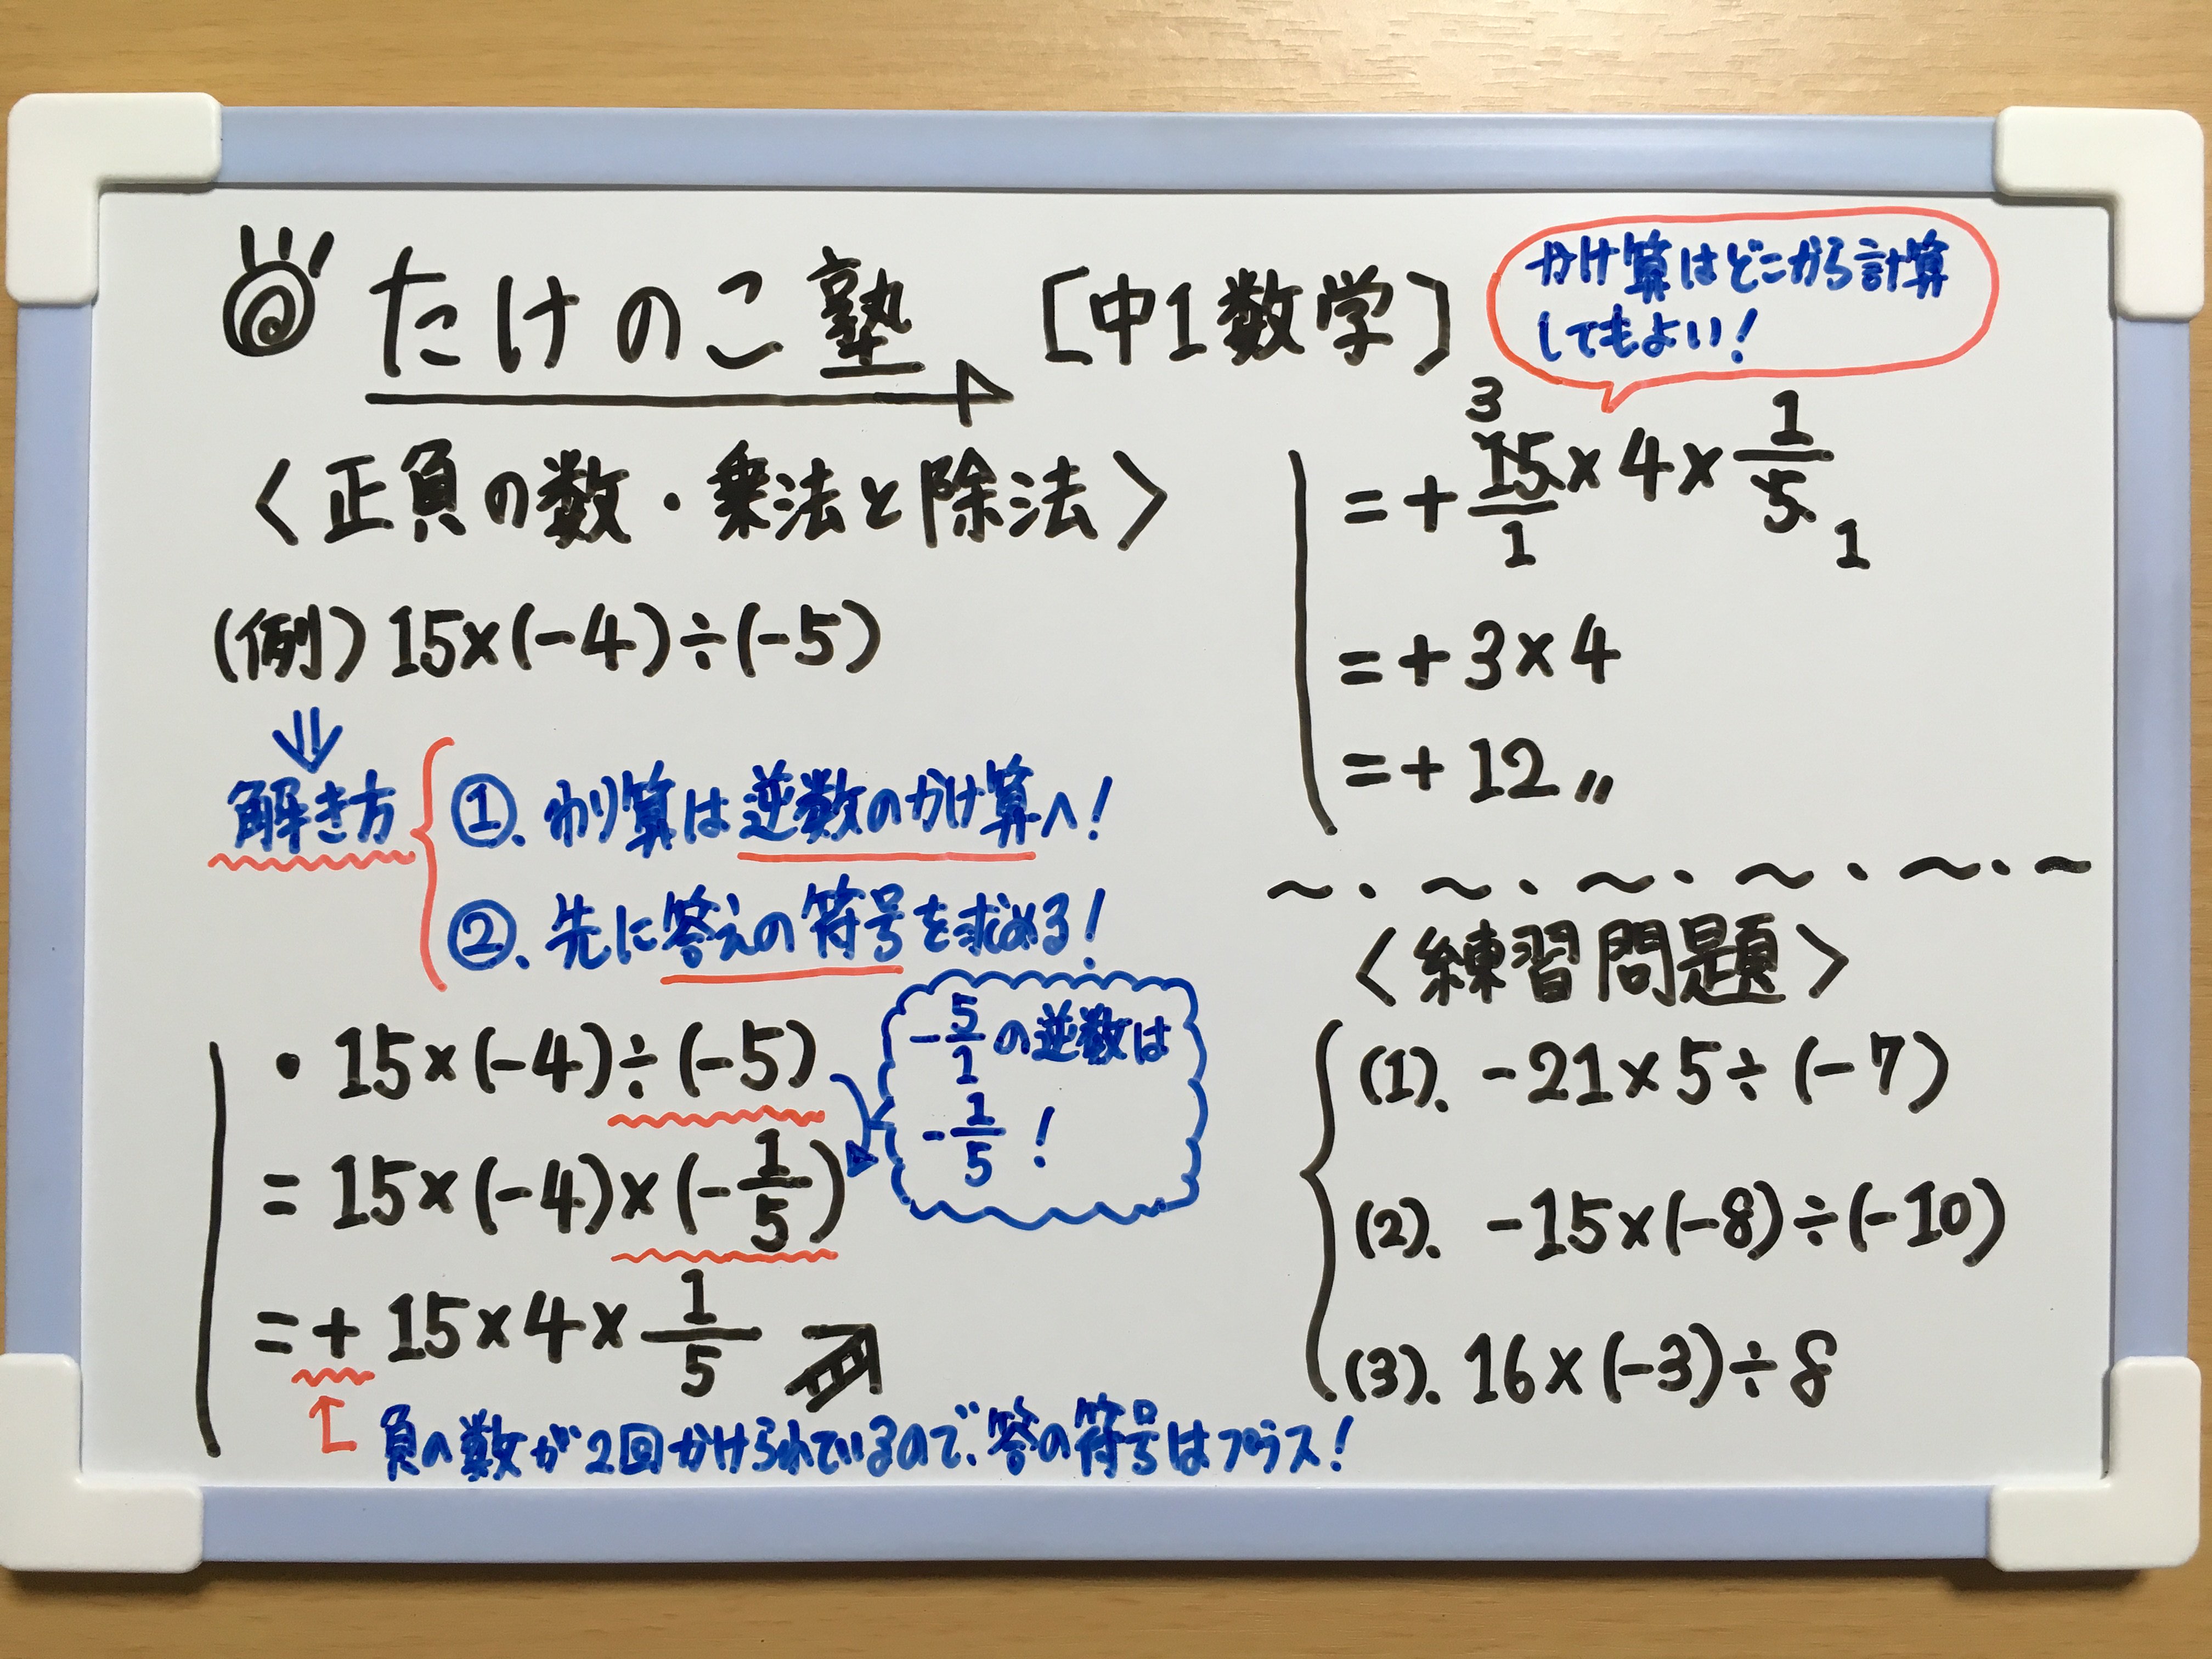 たけのこ塾 [中1数学]
<正負の数・乗法と除法>
(例) 15×(-4)÷(-5)
解き方
①. わり算は逆数のかけ算へ!
②. 先に答えの符号を求める!
・15×(-4)÷(-5)
-5/1の逆数は
-1/5!
=15×(-4)×(-1/5)
=+15×4×1/5
負の数が2回かけられているので、答の符号はプラス!
かけ算はどこから計算
してもよい!
3
=+15/1×4×1/5
1
=+3×4
=+12〃
~・~・~・~・~・~
<練習問題>
(1). -21×5÷(-7)
(2). -15×(-8)÷(-10)
(3). 16×(-3)÷8